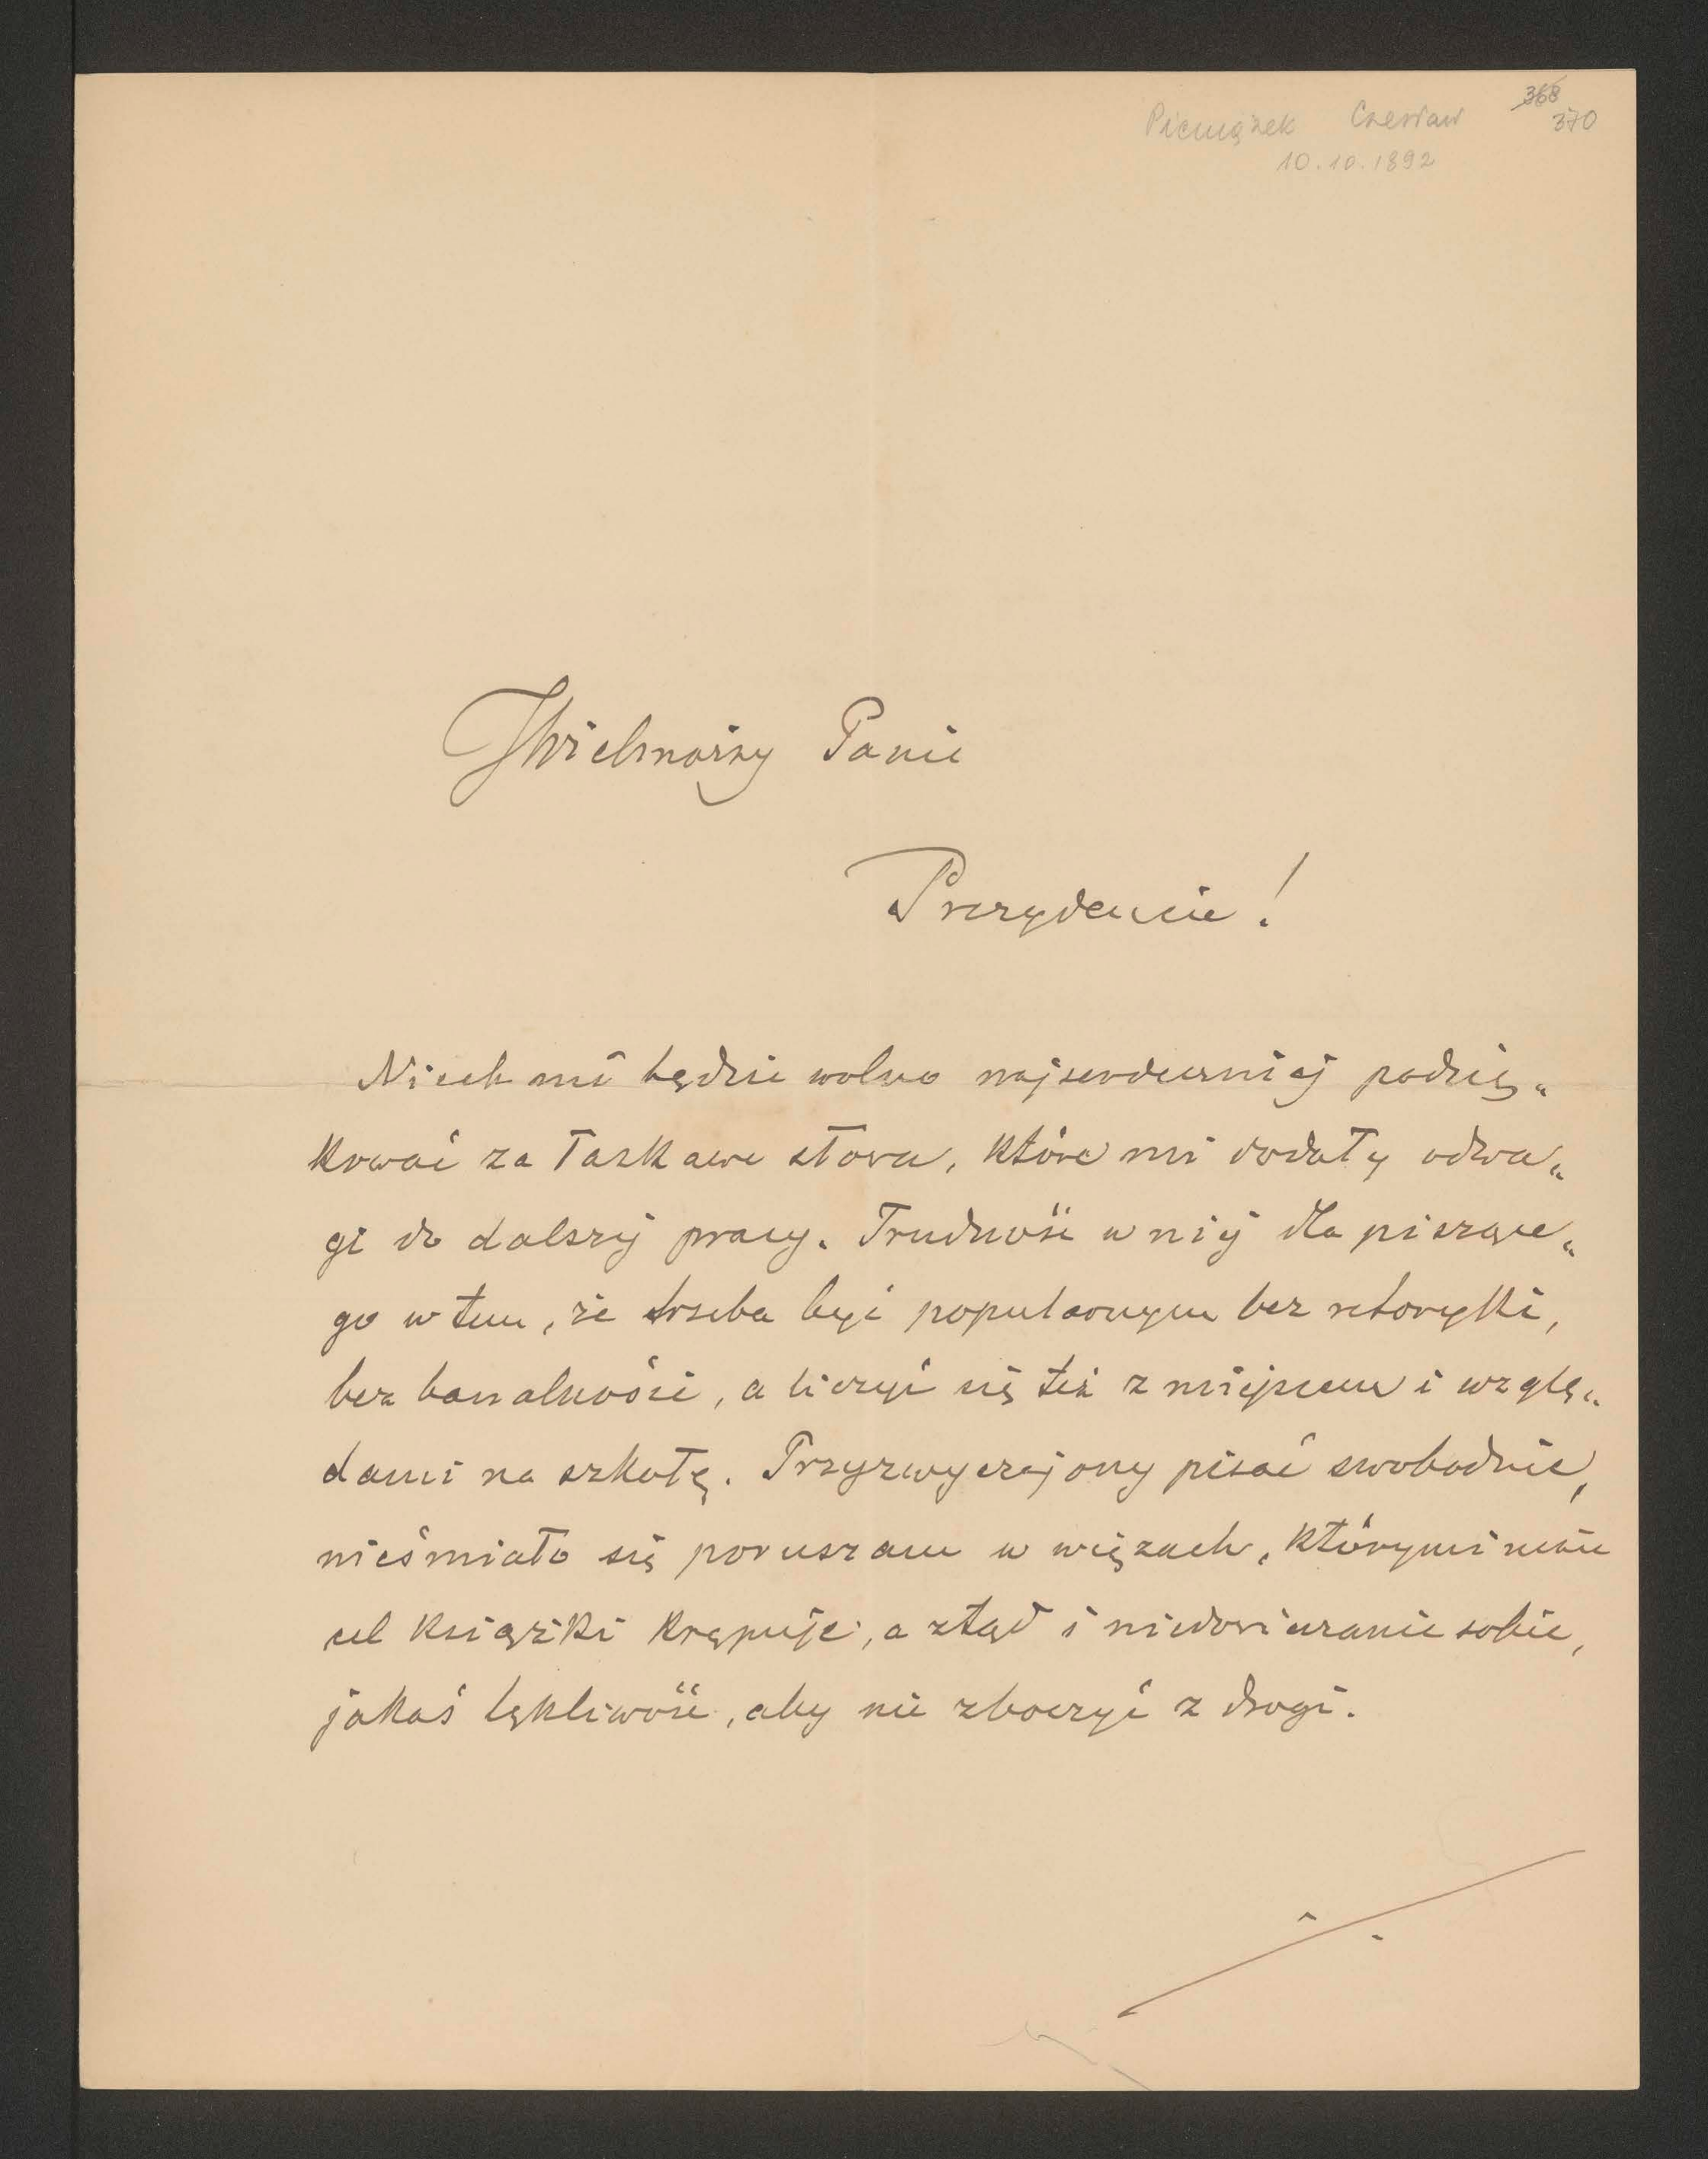 Pieniążek Czesław 368
370
10.10.1892
JWielmożny Panie
Prezydencie!
Niech mi będzie wolno najserdeczniej podzię„
kować za łaskawe słowa, które mi dodały odwa„
gi do dalszej pracy. Trudność w niéj dla piszące„
go w tem, że trzeba być popularnym bez retoryki,
bez banalności, a liczyć się też z miejscem i wzglę„
dami na szkołę. Przyzwyczajony pisać swobodnie,
nieśmiało się poruszam w więzach, którymi mnie
cel książki krępuje, a ztąd i niedowierzanie sobie,
jakaś lękliwość, aby nie zboczyć z drogi.